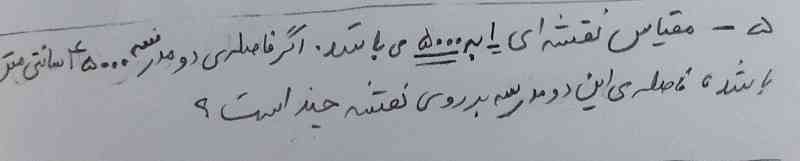 ۵ - مقیاس نقشه ای ۱ به ۵۰۰۰ می باشد. اگر فاصله ی دو مدرسه ۴۵۰۰۰ سانتی متر
باشد، فاصله ی این دو مدرسه بر روی نقشه چند است؟